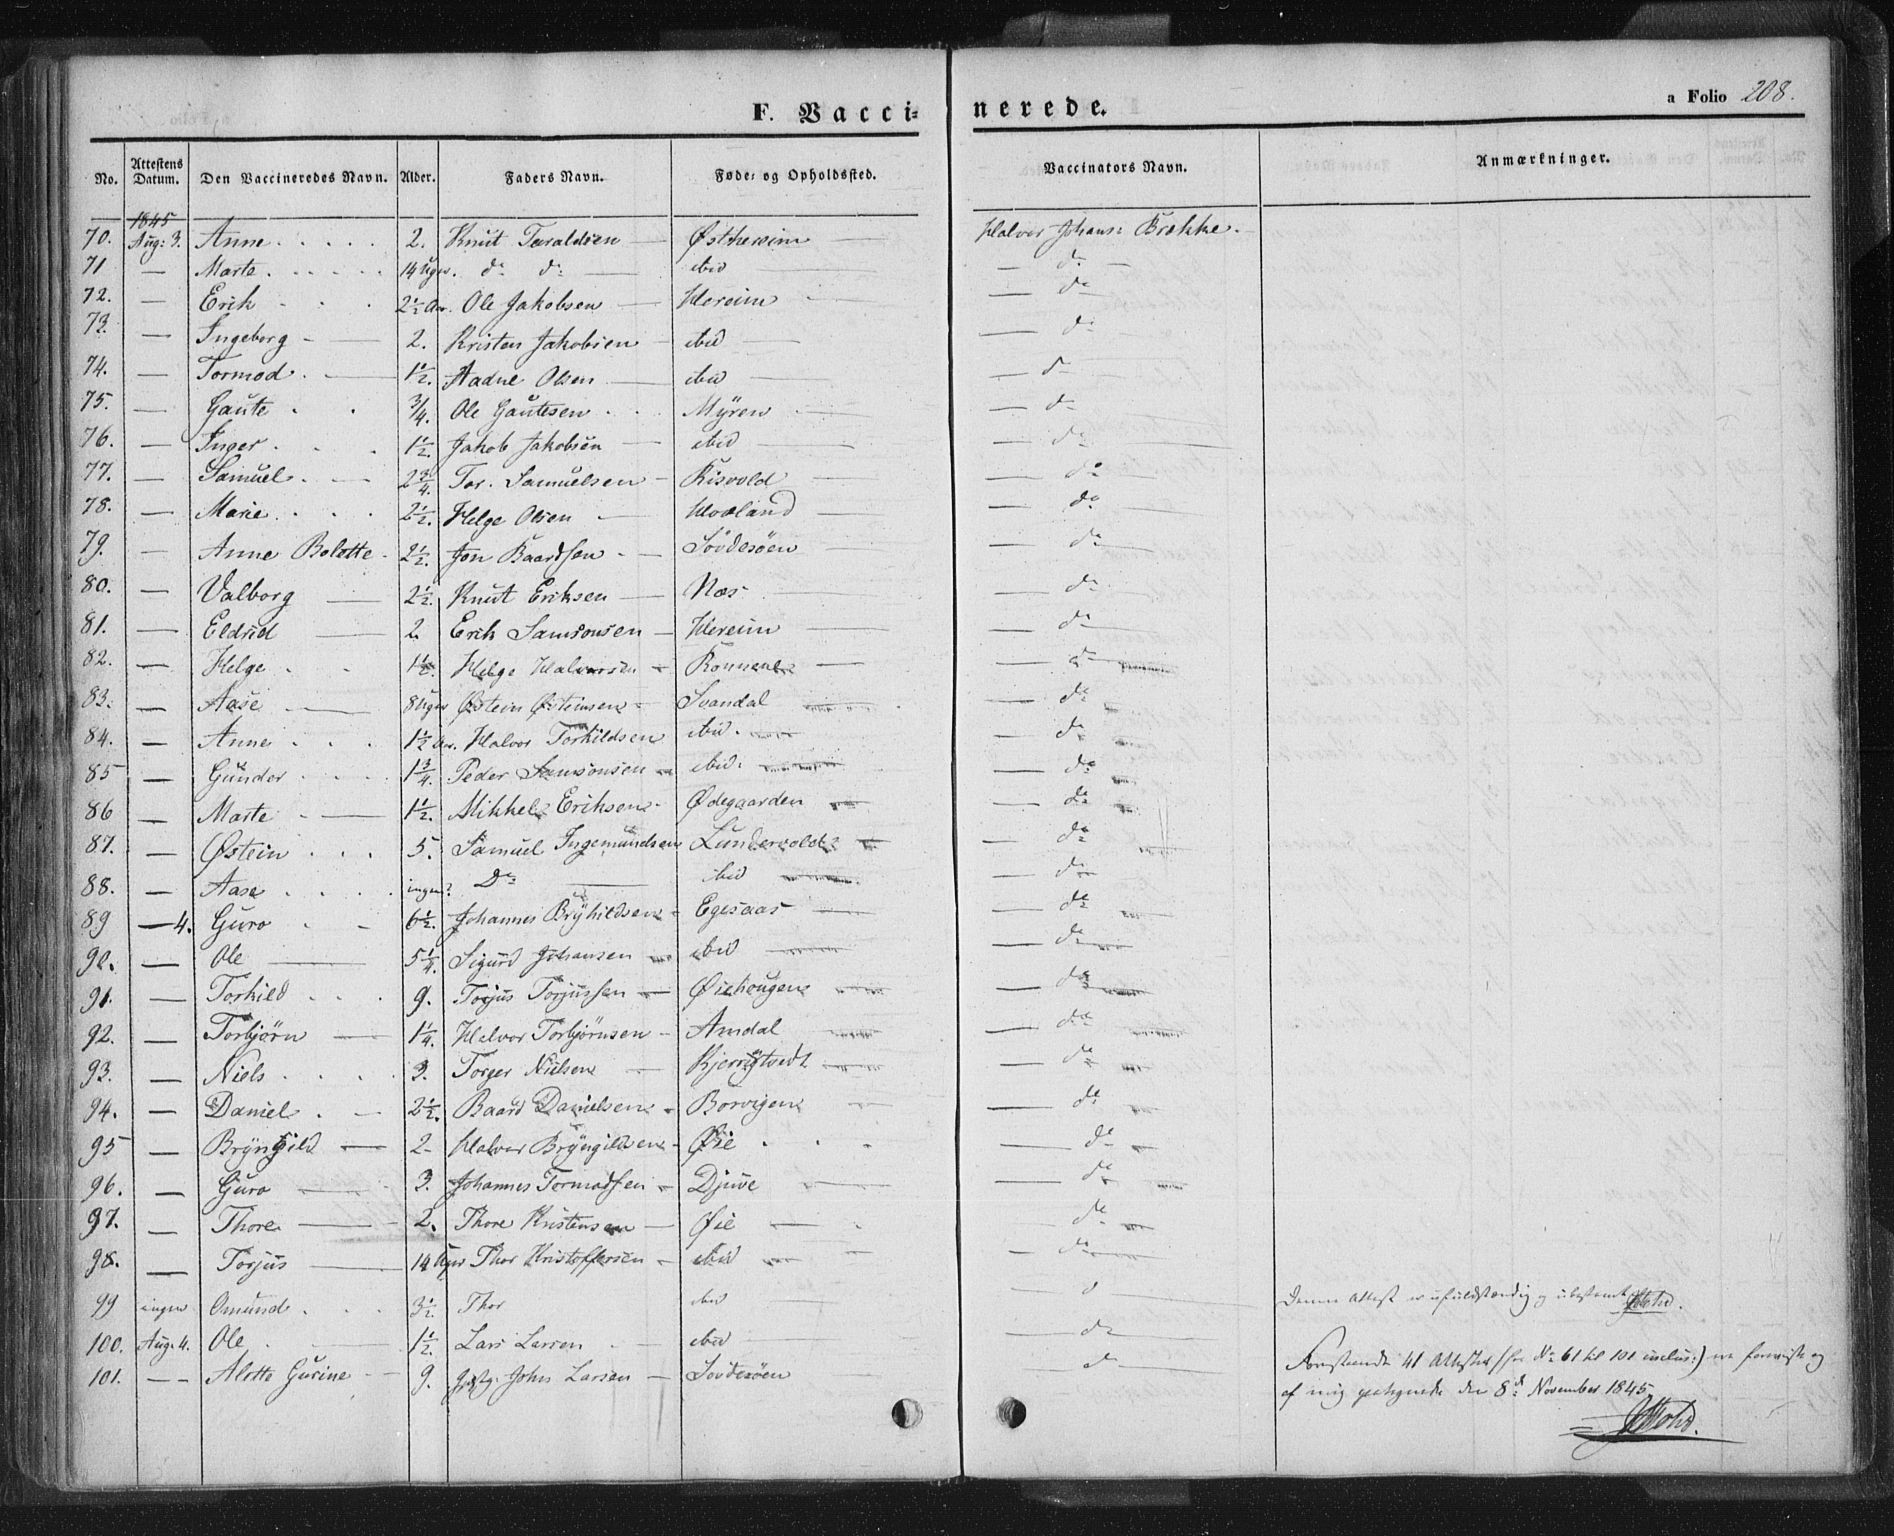 F. Vacci= nerede. a Folio 208.
No. Attestens Datum. Den Vaccineredes Navn. Alder. Faders Navn. Føde- og Opholdssted. Vaccinators Navn. Anmærkninger.
1845
70. Aug: 3. Anne 2. Knut Taraldsen Halvor Johans: Brekke.
71 — Marte 14 Uger. do do ibid — do —
72. — Erik 2½ Aar. Ole Jakobsen Hereim — do
73. — Ingeborg 2. Kristen Jakobsen ibid — do
74. — Tormod 1½. Aadne Olsen ibid — do
75. — Gaute ¾. Ole Gautesen Myren — do
76. — Inger 1½ Jakob Jakobsen ibid — do
77. — Samuel 2¾. Tor. Samuelsen Risvold — do
78. — Marie 2½. Helge Olsen Hovland — do
79. — Anne Bolette 2½. Jon Baardsen Sövdesöen — do
80. — Valborg 2½. Knut Eriksen Næs — do
81. — Eldrid 2. Erik Samsonsen Hereim — do
82. — Helge 1½. Helge Halvorsen — do
83. — Aase 8 Uger Østein Østensen Svandal — do
84. — Anne 1½ Aar. Halvor Torkildsen ibid. — do
85 — Gunder 1¾. Peder Samsonsen ibid. — do
86 — Marte 1½. Mikkel Eriksen Ødegaarden — do
87. — Østein 5. Samuel Ingemundsen Lundevold — do
88. — Aase ingen? Do ibid — do
89 — 4. Guro 6½. Johannes Brÿnildsen Egesaas — do
90. — Ole 5¼. Sigurd Johansen ibid — do
91. — Torkild 9. Torjus Torjussen Øiehougen — do
92. — Torbjörn 1¼. Halvor Torbjörnsen Amdal — do
93. — Niels 3. Torger Nielsen — do
94. — Daniel 2½. Baard Danielsen Borvigen — do
95 — Brÿngild 2 Halvor Brÿngildsen Øie — do
96. — Guro 3. Johannes Tormodsen Djuve — do
97. — Thore 2. Thore Kristensen Øie — do
98. — Torjus 14 Uger Thor Kristoffersen ibid — do
99 ingen Omund 3½ Thor ibid — d Denne Attest er ufuldstændig og ubestemt
100. Aug. 4. Ole 1½. Lars Larsen ibid — do
101. — Alette Gurine 9. John Larsen Sövdesöen — do Forestaaende 41 Attester (fra No 61 til 101 inclus:) ere foreviste og
af mig paategnede den 8de November 1845